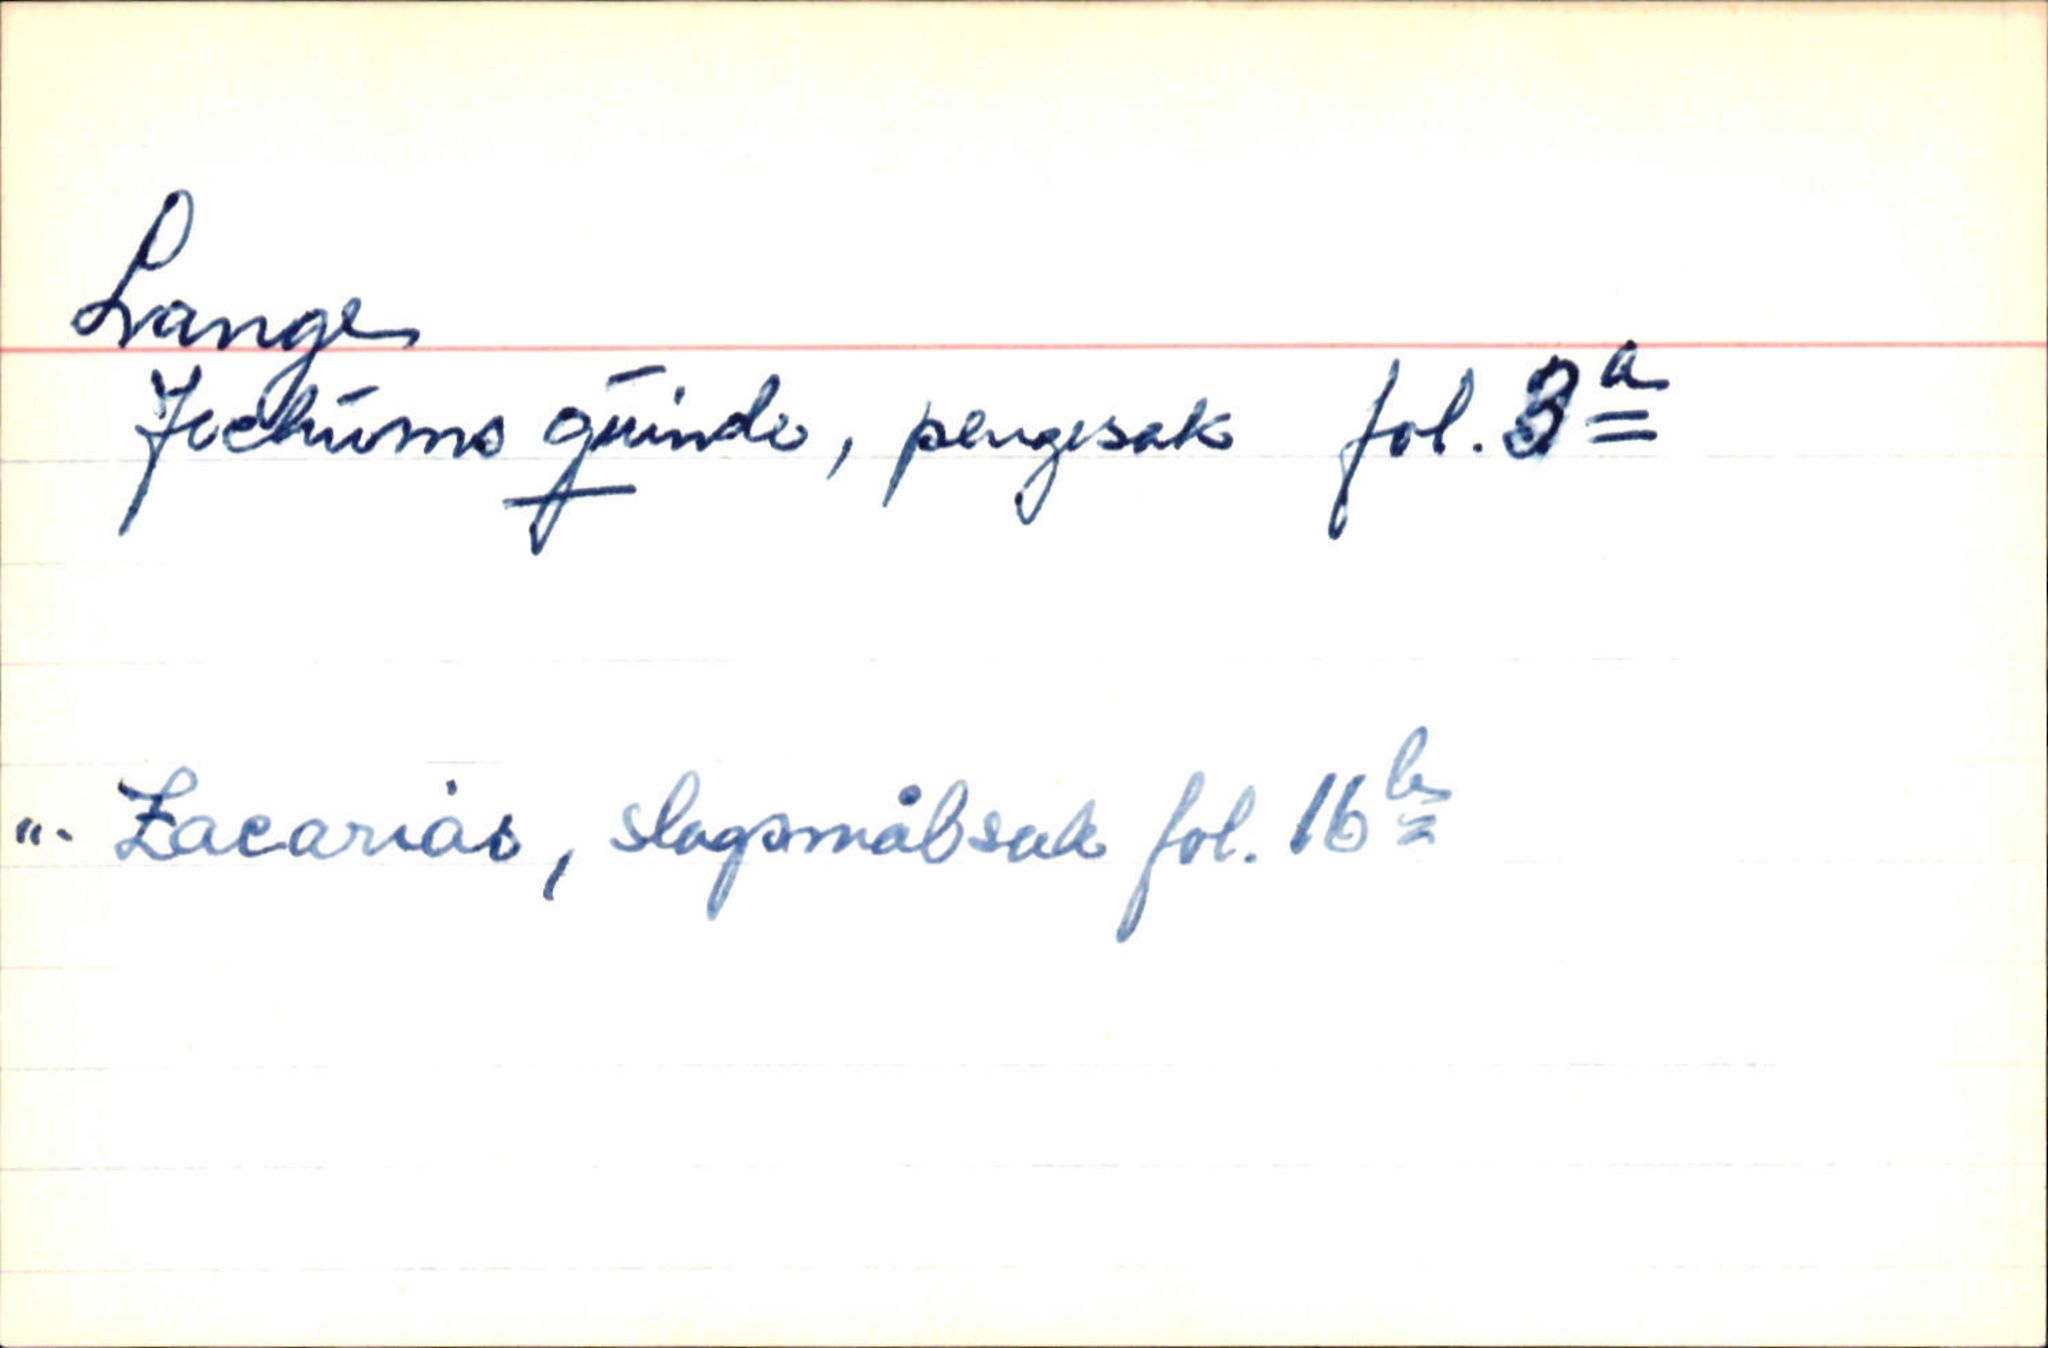 Lange
Jochums quinde, pengesak fol. 3a
"- Zacarias, slagsmålsak fol. 16b